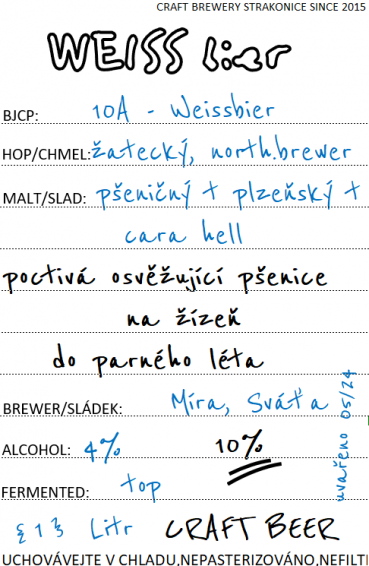 CRAFT BREWERY STRAKONICE SINCE 2015
WEISS bier
BJCP: 10A - Weissbier
HOP/CHMEL: žatecký, north.brewer
MALT/SLAD: pšeničný + plzeňský +
cara hell
poctivá osvěžující pšenice
na žízeň
do parného léta
BREWER/SLÁDEK: Míra, Sváťa
uvařeno 05/24
ALCOHOL: 4% 10%
FERMENTED: top
Litr CRAFT BEER
UCHOVÁVEJTE V CHLADU,NEPASTERIZOVÁNO,NEFILT